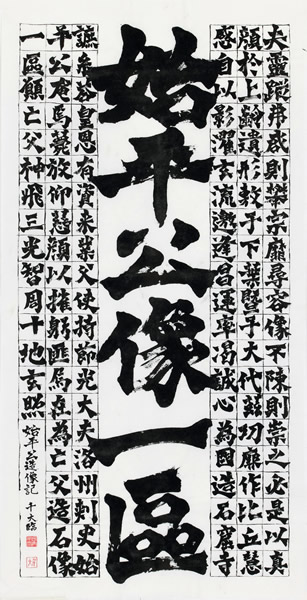 夫靈蹤弗啟則攀宗靡尋容像不陳則崇之必是以真
顏於上齡遺形敷于下葉暨于大代茲功厥作比丘慧
成自以影濯玄流邀逢昌運率竭誠心為國造石窟寺
始平公像一區
系答皇恩有資来業父使持節光大夫洛州刺史始
平公奄焉薨放仰慈顏以摧躬匪烏在為亡父造石像
一區願亡父神飛三光智周十地玄照
始平公造像記